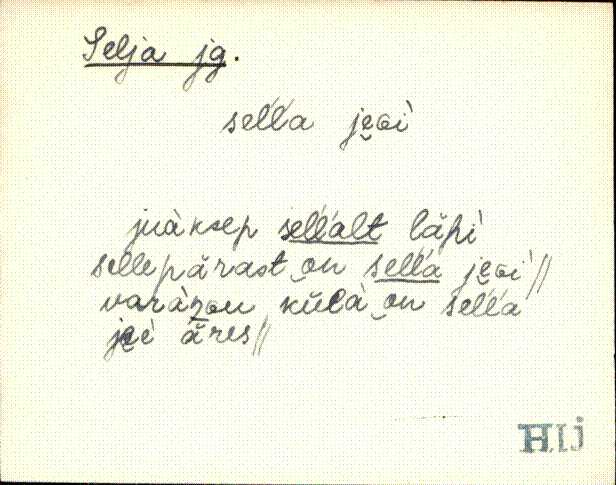 Selja jg.
sel'l'a jeɢi
juàksep sel'l'alt läpi
sellepärast on sel'l'a jeɢi //
varàzou külà on sel'l'a
äres //
HIj